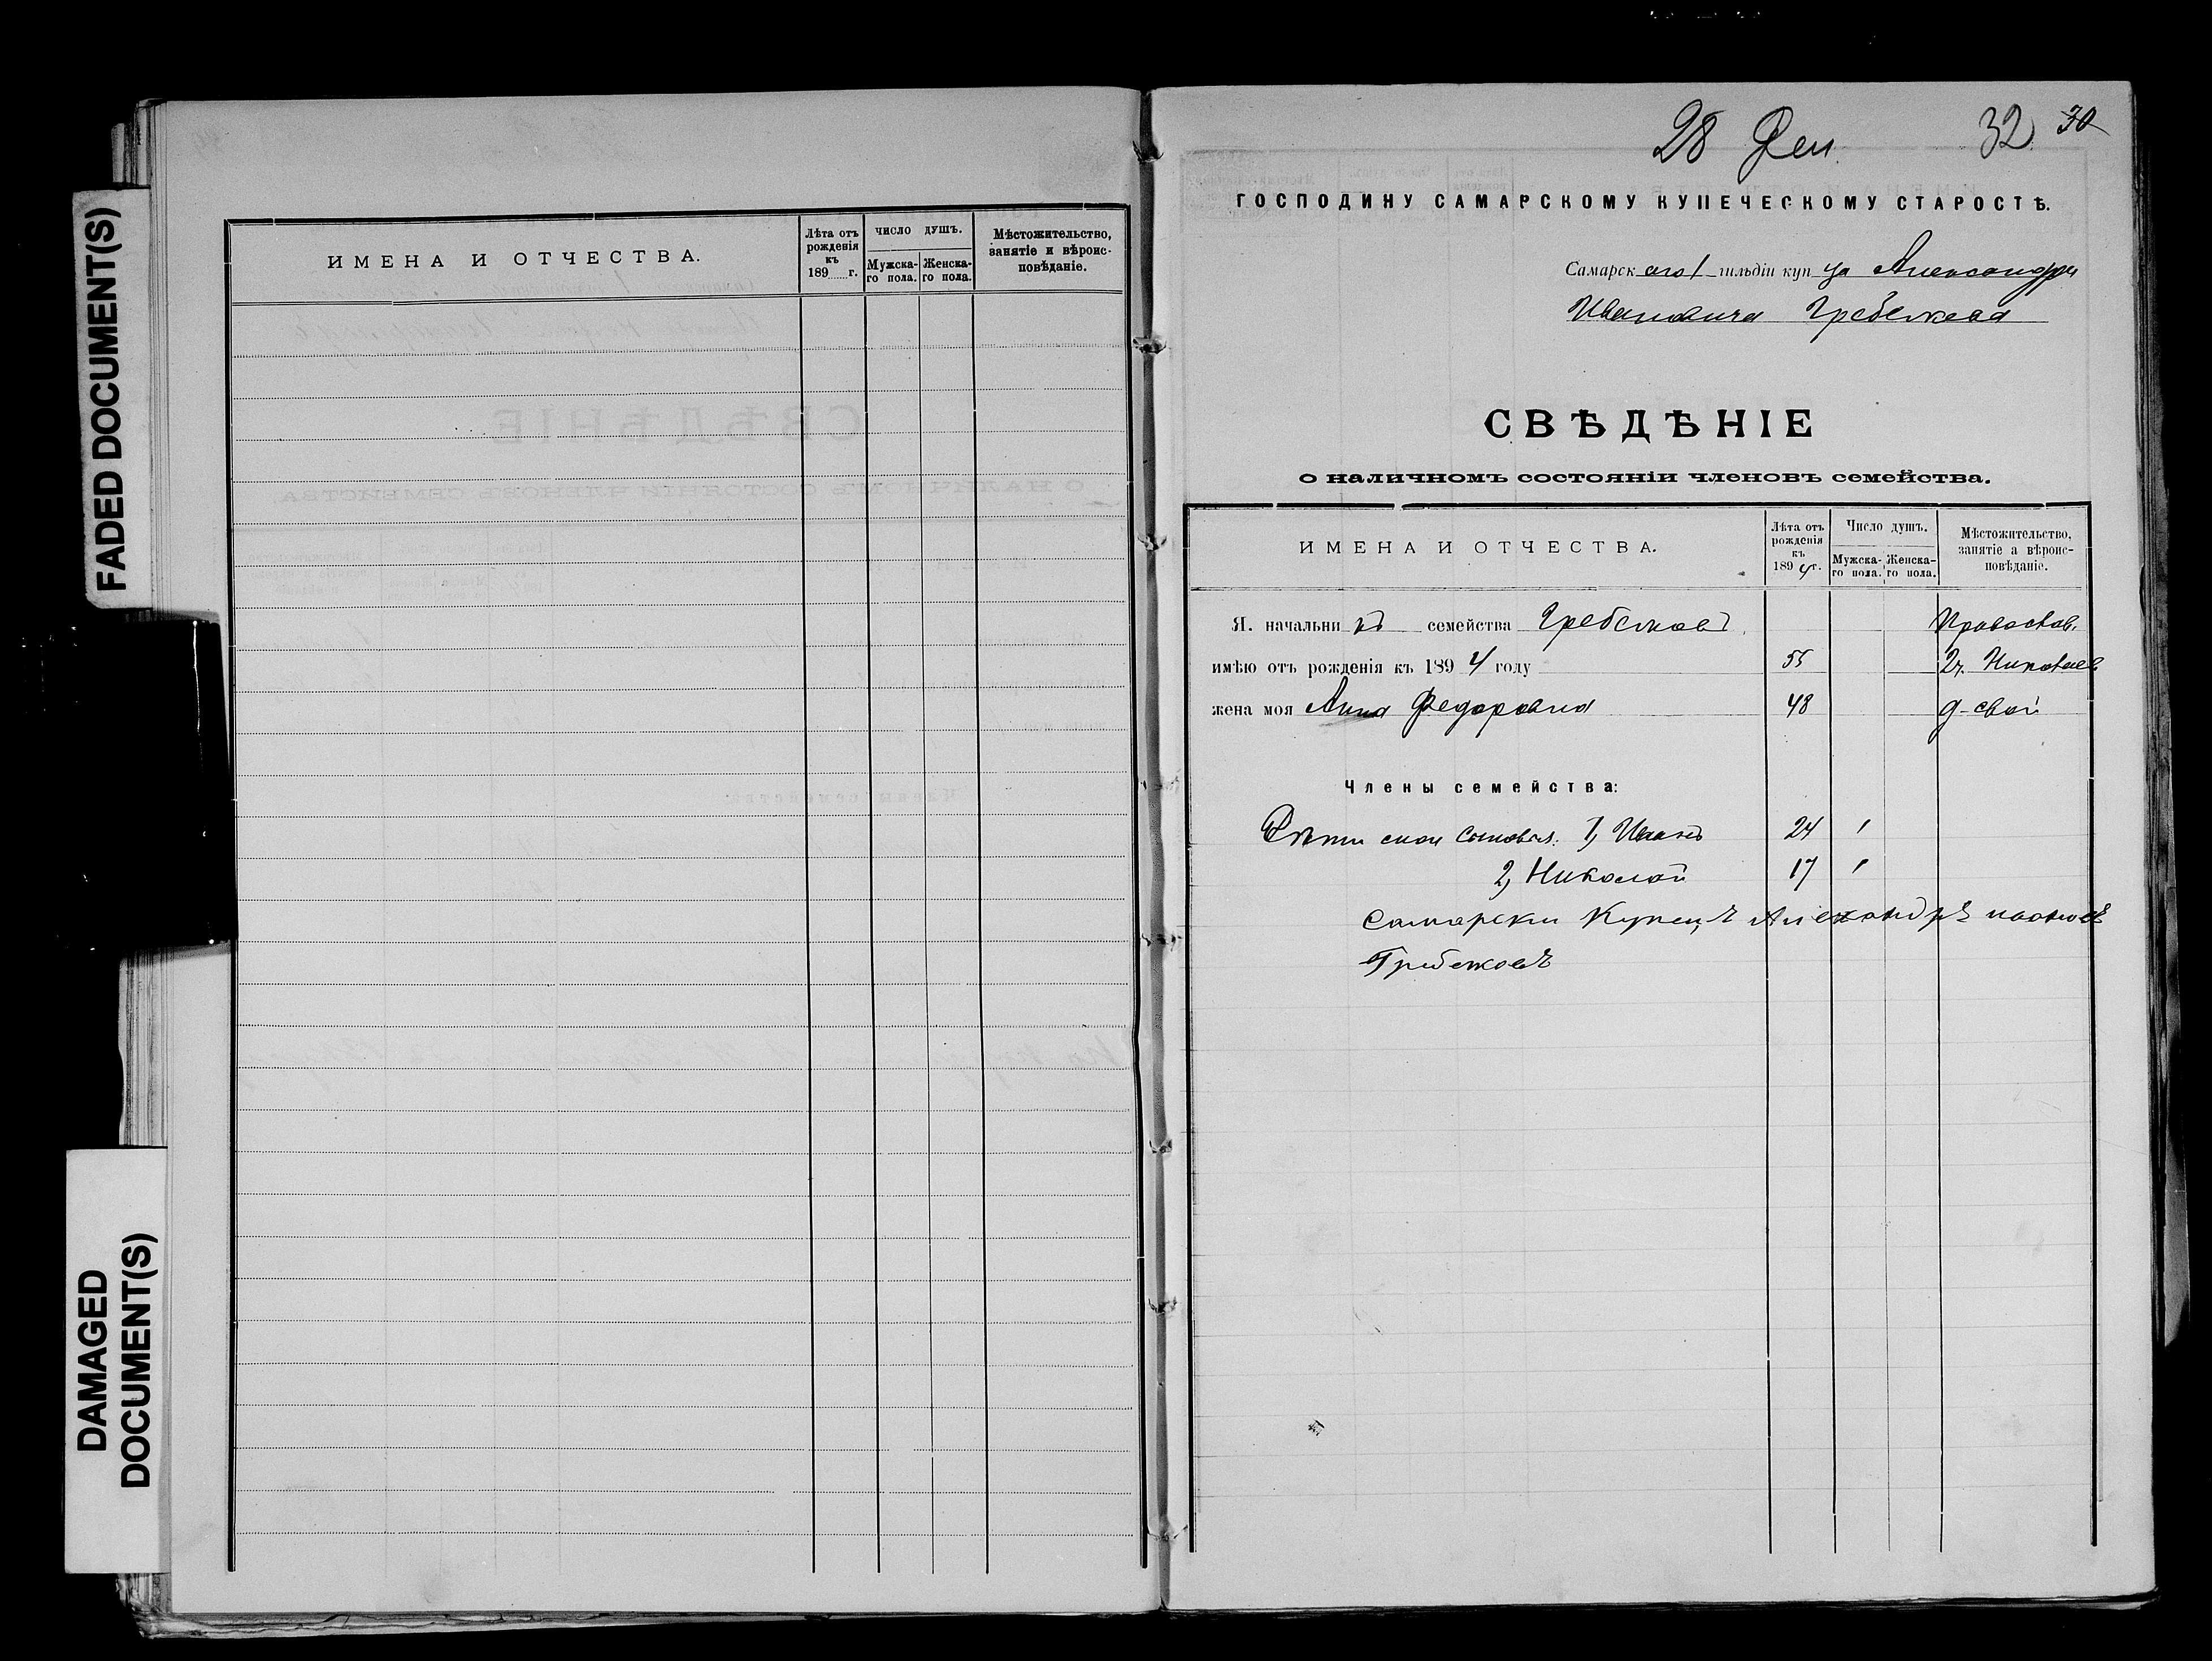 FADED DOCUMENT(S)
DAMAGED
DOCUMENT(S)
ИМЕНА И ОТЧЕСТВА.
Лѣта отъ рожденія къ 189 г.
число душъ.
Мужска-го пола.
Женска-го пола.
Мѣстожительство, занятіе и вѣроис-повѣданіе.
28 Фен.
32 30
ГОСПОДИНУ САМАРСКОМУ КУПЕЧЕСКОМУ СТАРОСТѢ.
Самарск аго 1 гильдіи куп ца Александра
Ивановича Гребежева
СВѢДѢНІЕ
о наличномъ состояніи членовъ семейства.
ИМЕНА И ОТЧЕСТВА.
Лѣта отъ рожденія къ 189 4 г.
Число душъ.
Мужска-го пола.
Женска-го пола.
Мѣстожительство, занятіе а вѣроис-повѣданіе.
Я. начальни къ семейства Гребежовъ Православ.
имѣю отъ рожденія къ 189 4 году 55 2ч. Николаев
жена моя Анна Федоровна 48 д-свой
Члены семейства:
Дѣти мои сыновья: 1, Иванъ 24 1
2, Николай 17 1
Самарски Купецъ Александръ
Гребежовъ